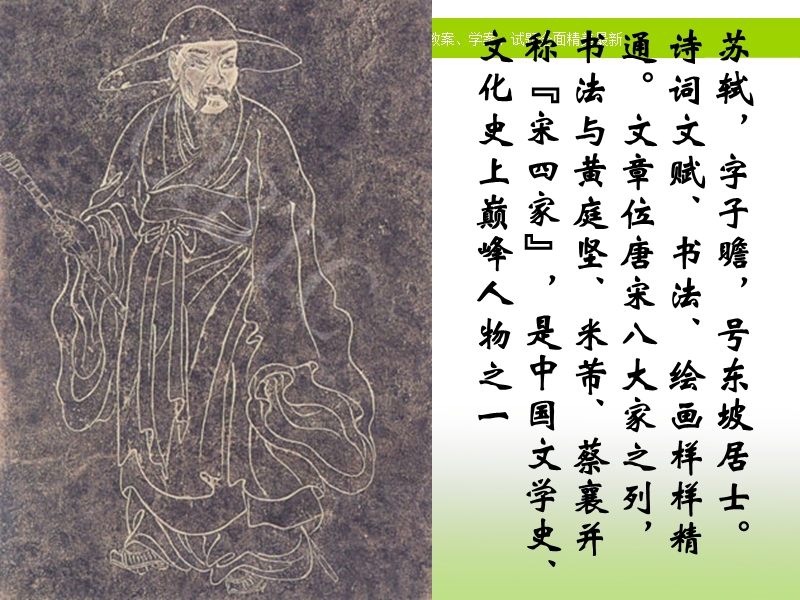 教案、学案、试题
面精
最新
苏轼，字子瞻，号东坡居士。
诗词文赋、书法、绘画样样精
通。文章位唐宋八大家之列，
书法与黄庭坚、米芾、蔡襄并
称『宋四家』，是中国文学史、
文化史上巅峰人物之一